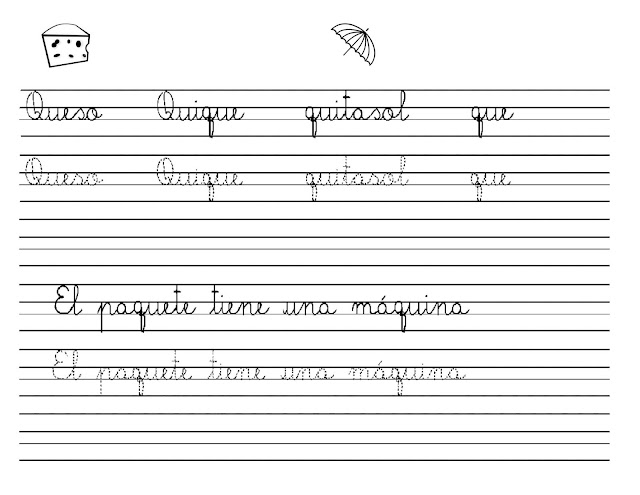 Queso Quique quitasol que
Queso Quique quitasol que
El paquete tiene una máquina
El paquete tiene una máquina